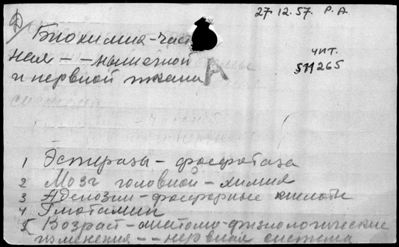 27.12.57. Р.А.
Биохимия-част
ная - - мышечной
и нервной ткани А
чит.
511265
1 Эстеразы - фосфотаза
2 Мозг головной - химия
3 Аденозин - фосфорные кислоты
4 Глютамин
5 Возраст - анатомо-физиологические
изменения - - нервная система